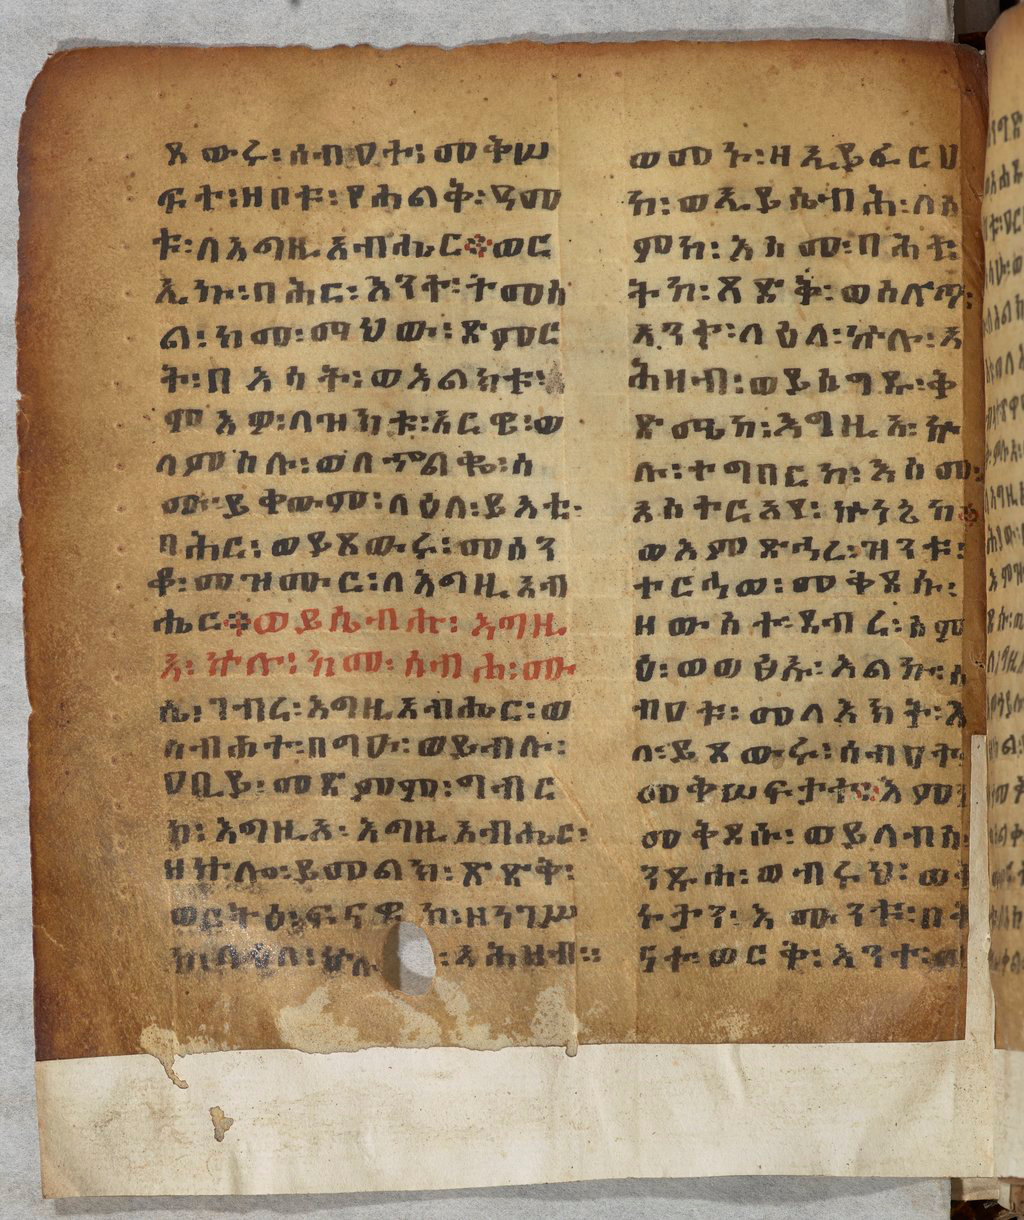 ጸውሩ፡ ሰብዐተ፡ መቅሠ
ፍተ፡ ዘቦቱ፡ የሐልቅ፡ ዓመ
ቱ፡ ለእግዚአብሔር፨ ወር
ኢኩ፡ በሕር፡ እንተ፡ ትመስ
ል፡ ከመ፡ ማህው፡ ጽምር
ት፡ በእሳት፡ ወእልክቱ፡
ለዝክቱ፡ አርዌ፡ ወ
ላምስሉ፡ ወለኍልቈ፡ ስ
ሙ፡ ይቀውሙ፡ ላዕለ፡ ይእቲ፡
ባሕር፡ ወይጸውሩ፡ መሰን
ቆ፡ መዝሙር፡ ለእግዚአብ
ሔር፨ ወይሴብሑ፡ እግዚ
አ፡ ኵሉ፡ ከመ፡ ሰብሐ፡ ሙ
ሴ፡ ገብረ፡ እግዚአብሔር፡ ወ
ሰብሐተ፡ በግዑ፡ ወይብሉ፡
ዐቢይ፡ መድምም፡ ግብር
ከ፡ እግዚአ፡ እግዚአብሔር፡
ዘኵሎ፡ ይመልክ፡ ጽድቅ፡
ወርትዕ፡ ፍናዊከ፡ ዘንግሥ
ከ፡ ላዕለ፡ ኵሉ፡ አሕዛብ፡፡
ወመኑ፡ ዘኢይፈርህ
ከ፡ ወኢይሴብሕ፡ ለስ
ምከ፡ እስመ፡ ባሕቲ
ትከ፡ ጻድቅ፡ ወስሉጣ፡
አንተ፡ ላዕለ፡ ኵሉ፡ አ
ሕዛብ፡ ወይሰግዱ፡ ቅ
ድሜከ፡ እግዚአ፡ ኵ
ሉ፡ ተግበርከ፡ እስመ፡
አስተርአየ፡ ኵነኔከ፨
ወእምድኅረ፡ ዝንቱ፡
ተርኅወ፡ መቅደሱ፡
ዘውስተ፡ ደብረ፡ ስም
ዕ፡ ወወፅኡ፡ እልኩ፡ ሰ
ብዐቱ፡ መላእክት፡ እ
ለ፡ ይጸውሩ፡ ሰብዐተ
መቅሠፍታተ፡ እምነ
መቅደሱ፡ ወይላብሱ
ንጹሐ፡ ወብሩህ፡ ወቅ
ኑታን፡ እሙንቱ፡ በቅ
ናተ፡ ወርቅ፡ እንተ፡